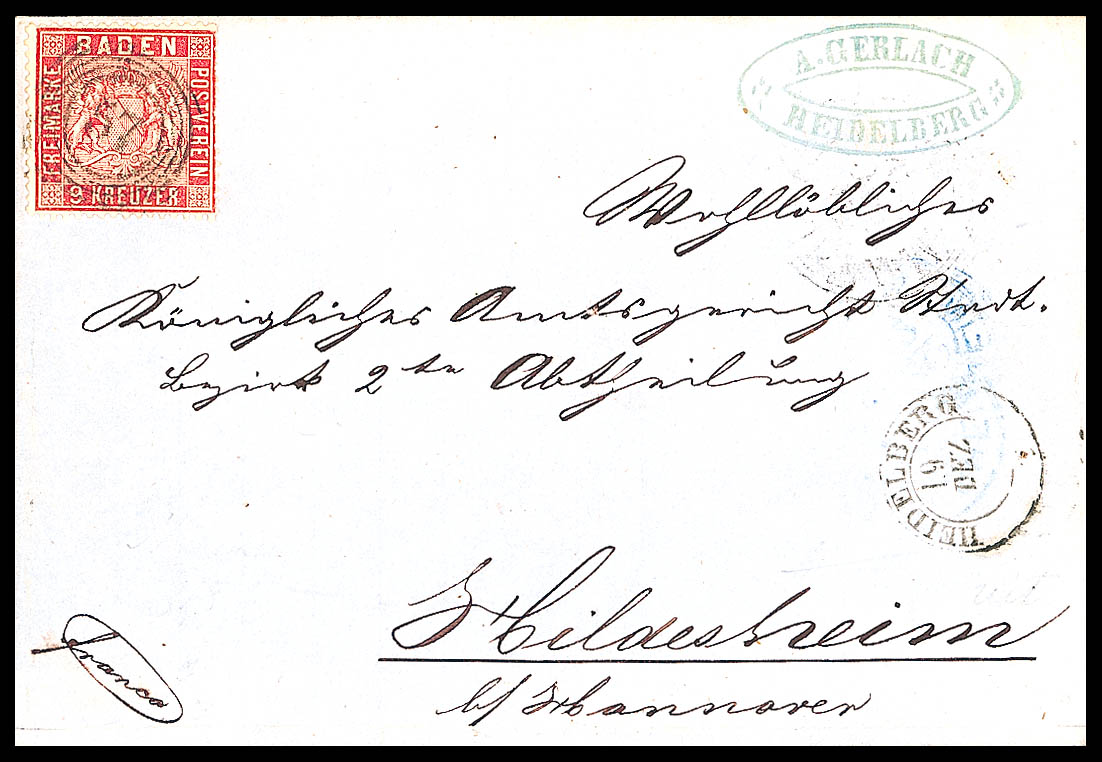 BADEN
FREIMARKE
POSTVEREIN
9 KREUZER
A. GERLACH
HEIDELBERG
Wohllöbliches
Königliches Amtsgericht Stadt-
bezirk 2te Abtheilung
HEIDELBERG
DEZ
61
Hildesheim
b/ Hannover
franco